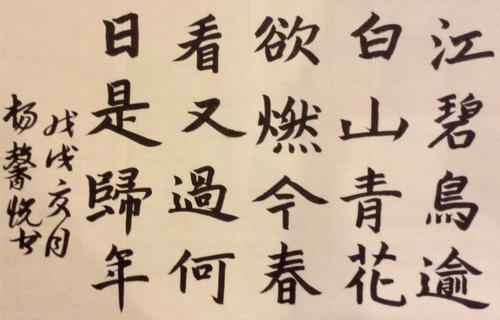 江碧鳥逾
白山青花
欲燃今春
看又過何
日是歸年
戊戌亥月
杨馨悦书